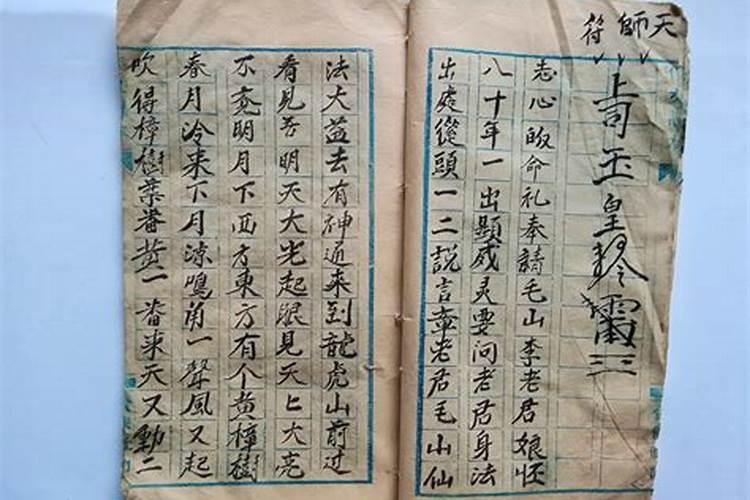 天師符
上司玉皇
志心皈命礼奉請毛山李老君娘怀
八十年一出顯威灵要问老君身法
出處從頭一二説言章老君毛山仙
法大益去有神通来到龍虎山前过
看見明天大光起眼見天大亮
不明月下西方東方有个黄樟樹
春月冷来下月涼鳴角一聲風又起
吹得樟樹葉番黄一番来天又動二